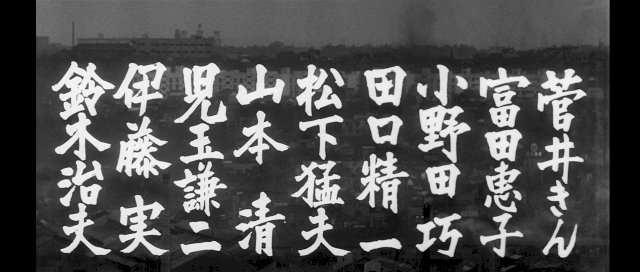 菅井きん
富田恵子
小野田巧
田口精一
松下猛夫
山本清
児玉謙二
伊藤実
鈴木治夫